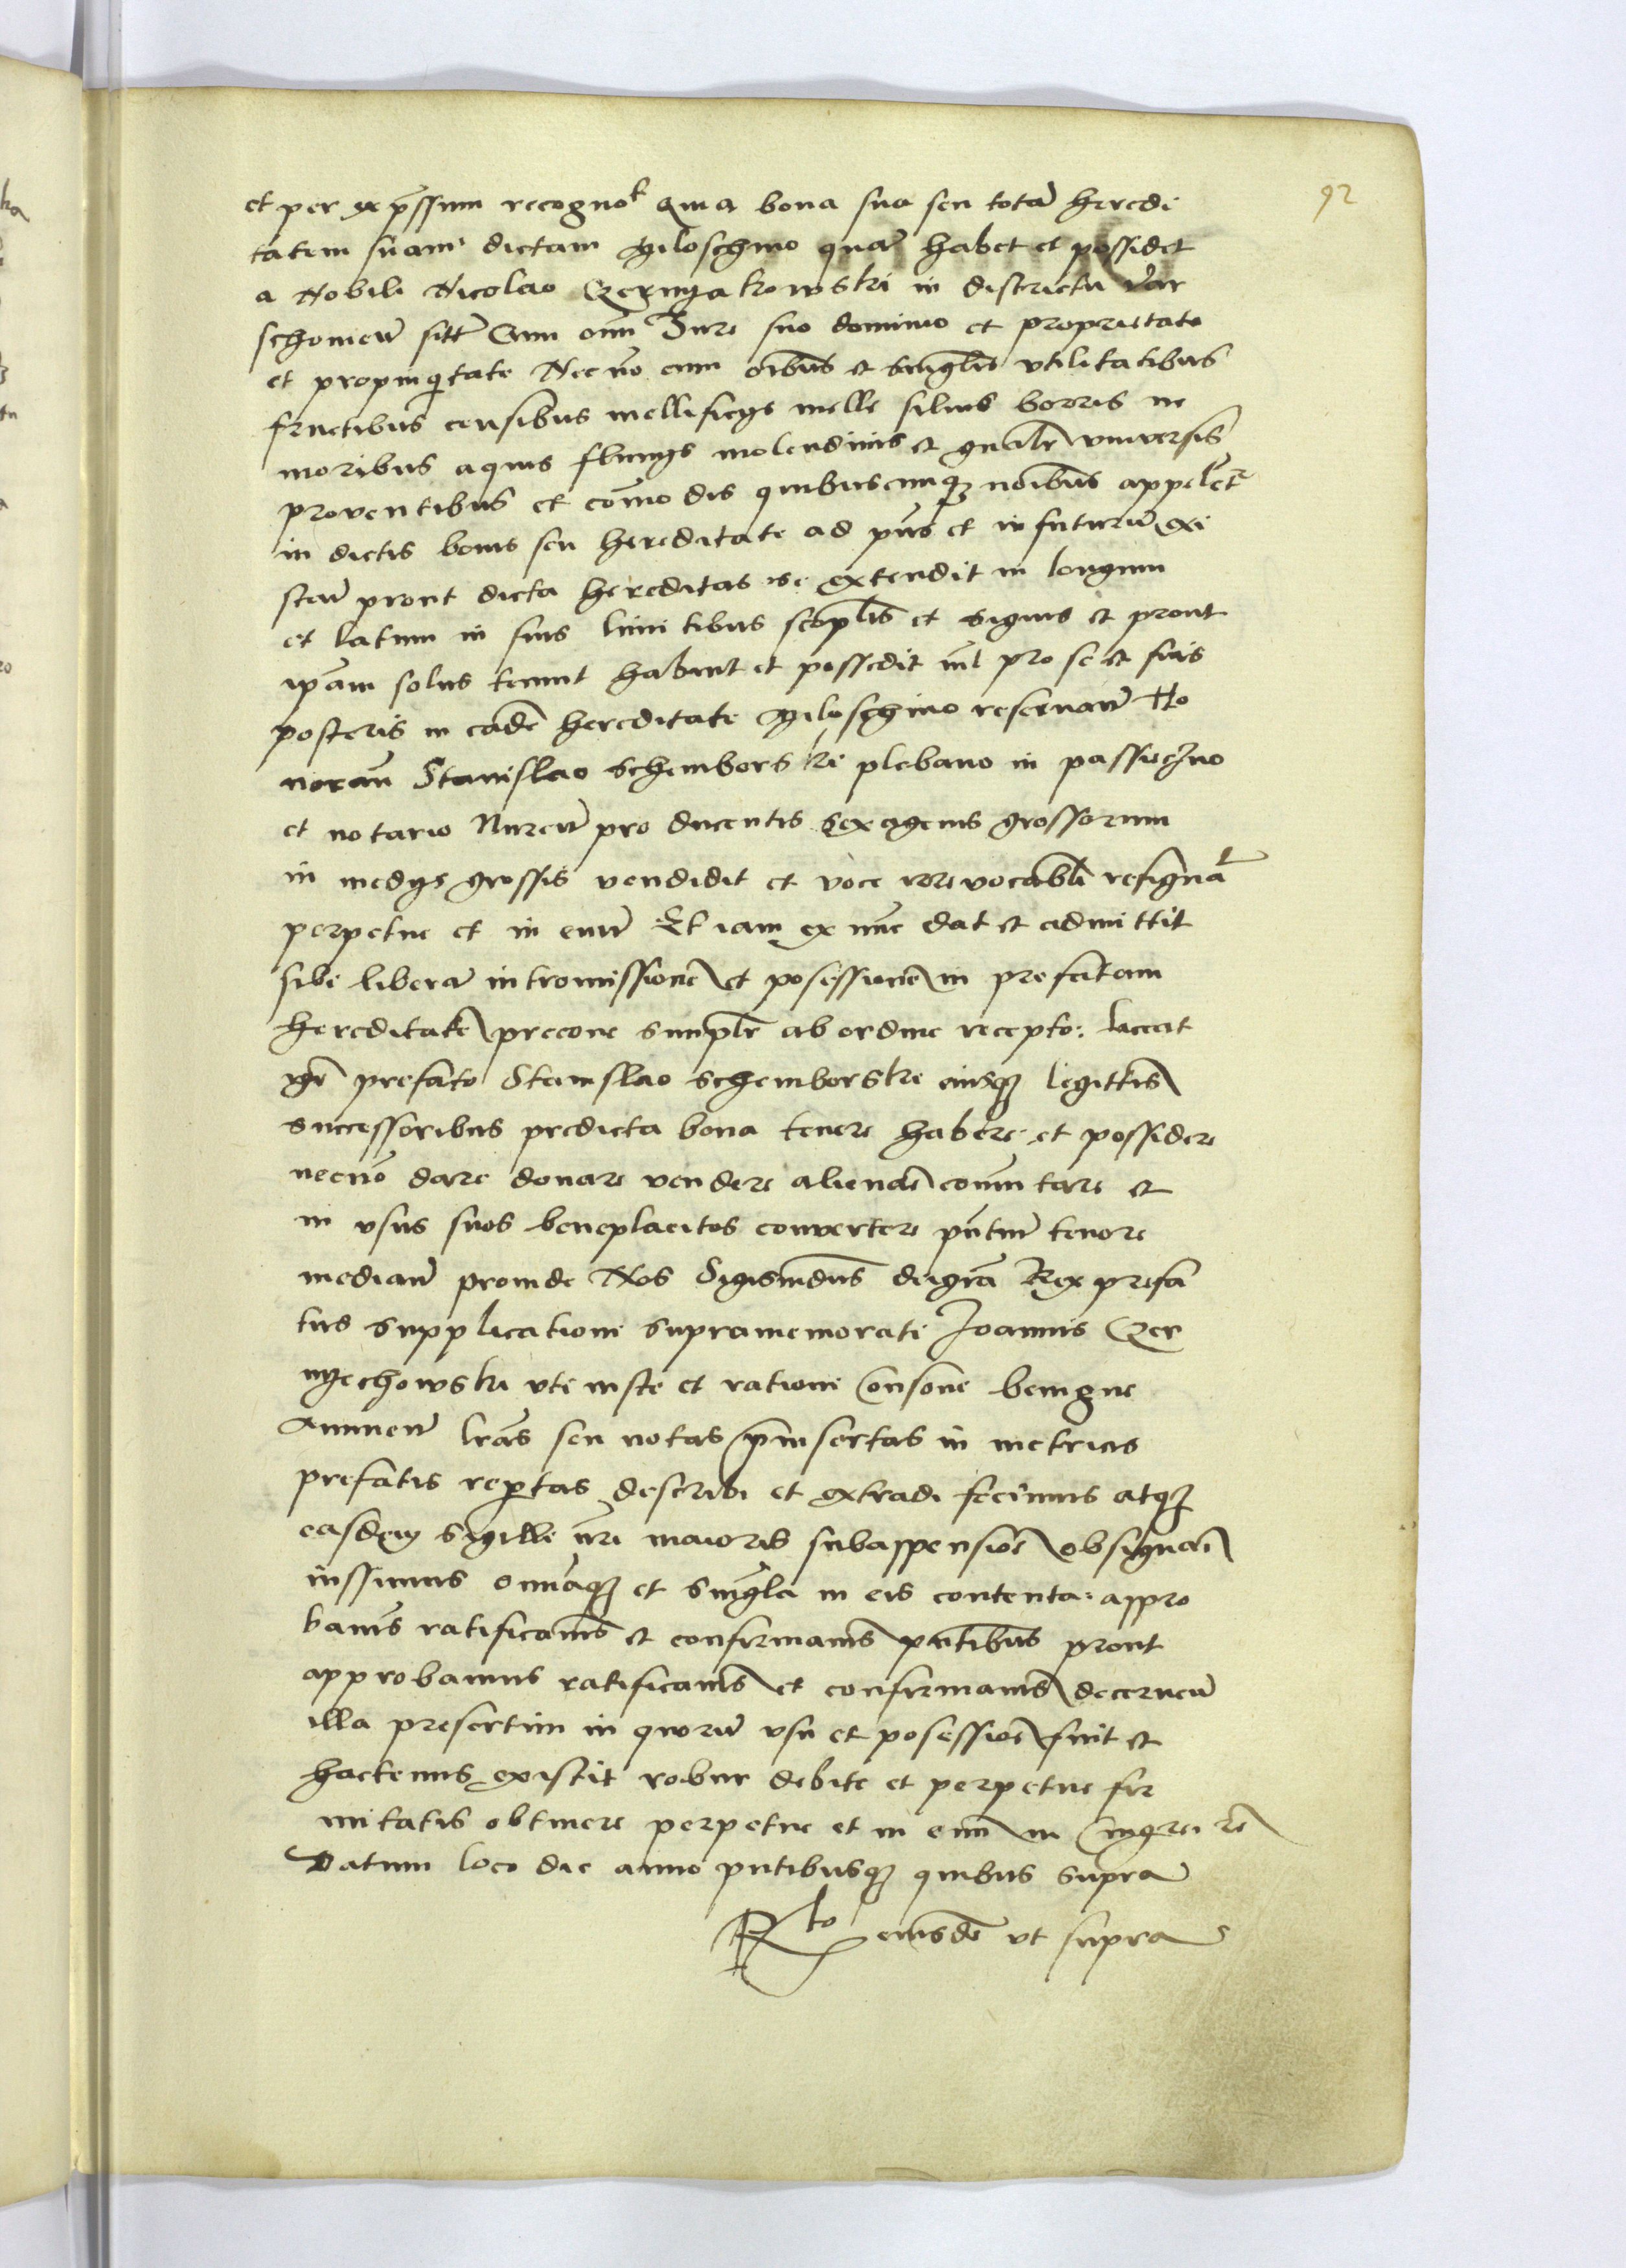 92
et per expssum recognot quia bona sua seu totā heredi
tatem suam dictam Giloschino quā habet et possidet
a Nobili Nicolao Czernyakowski in districtu Var
schouieñ sitt Cum om̄i Iure suo dominio et proprietate
et propinqitate Necnō cum oibus et singlis vtilitatibus
fructibus censibus mellificys melle siluis borris ne
moribus aquis fluuys molendinis et gnalr vniuersis
prouentibus et comodis quibuscunqȝ noibus appeletr
in dictis bonis seu hereditate ad pns et in futurū exi
sten prout dicta hereditas se extendit in longum
et latum in suis limitibus scoplis et signis et prout
ipam solus tenuit habuit et possedit nil pro se et suis
posteris in eadē hereditate Giloschino reseruan Ho
noran Stanislao Schemborski plebano in
et notario Nureñ pro ducentis sexagenis grossorum
in medys grossis vendidit et voce irreuocabli resignat
perpetue et in euū Et iam ex nūc dat et admittit
sibi liberā intromissionē et posessionē in prefatam
hereditatē precone simplr ab ordine recepto: liceat
gr prefato Stanislao Schemborski eiusqȝ legittīs
successoribus predicta bona tenere habere et possidere
necnō dare donare vendere alienāre comutare et
in vsus suos beneplacitos conuertere pntiū tenore
median proinde Nos Sigismūdus dei grā Rex prefa
tus supplicationi supramemorati Joannis Czer
nyechowski vti iuste et rationi consone benigne
Annuen lrās seu notas pinsertas in metricis
prefatis reptas describi et extradi fecimus atqȝ
easdem sigilli nri maioris subappensione obsignari
iussimus omniaqȝ et singla in eis contenta: appro
bamus ratificamus et confirmamus pntibus prout
approbamus ratificamus et confirmamus decernen
illa presertim in quorū vsu et posessione fuit et
hactenus existit robur debite et perpetue fir
mitatis obtinere perpetue et in euū in
Datum loco die anno pntibusqȝ quibus supra
Rto eiusdē vt supra